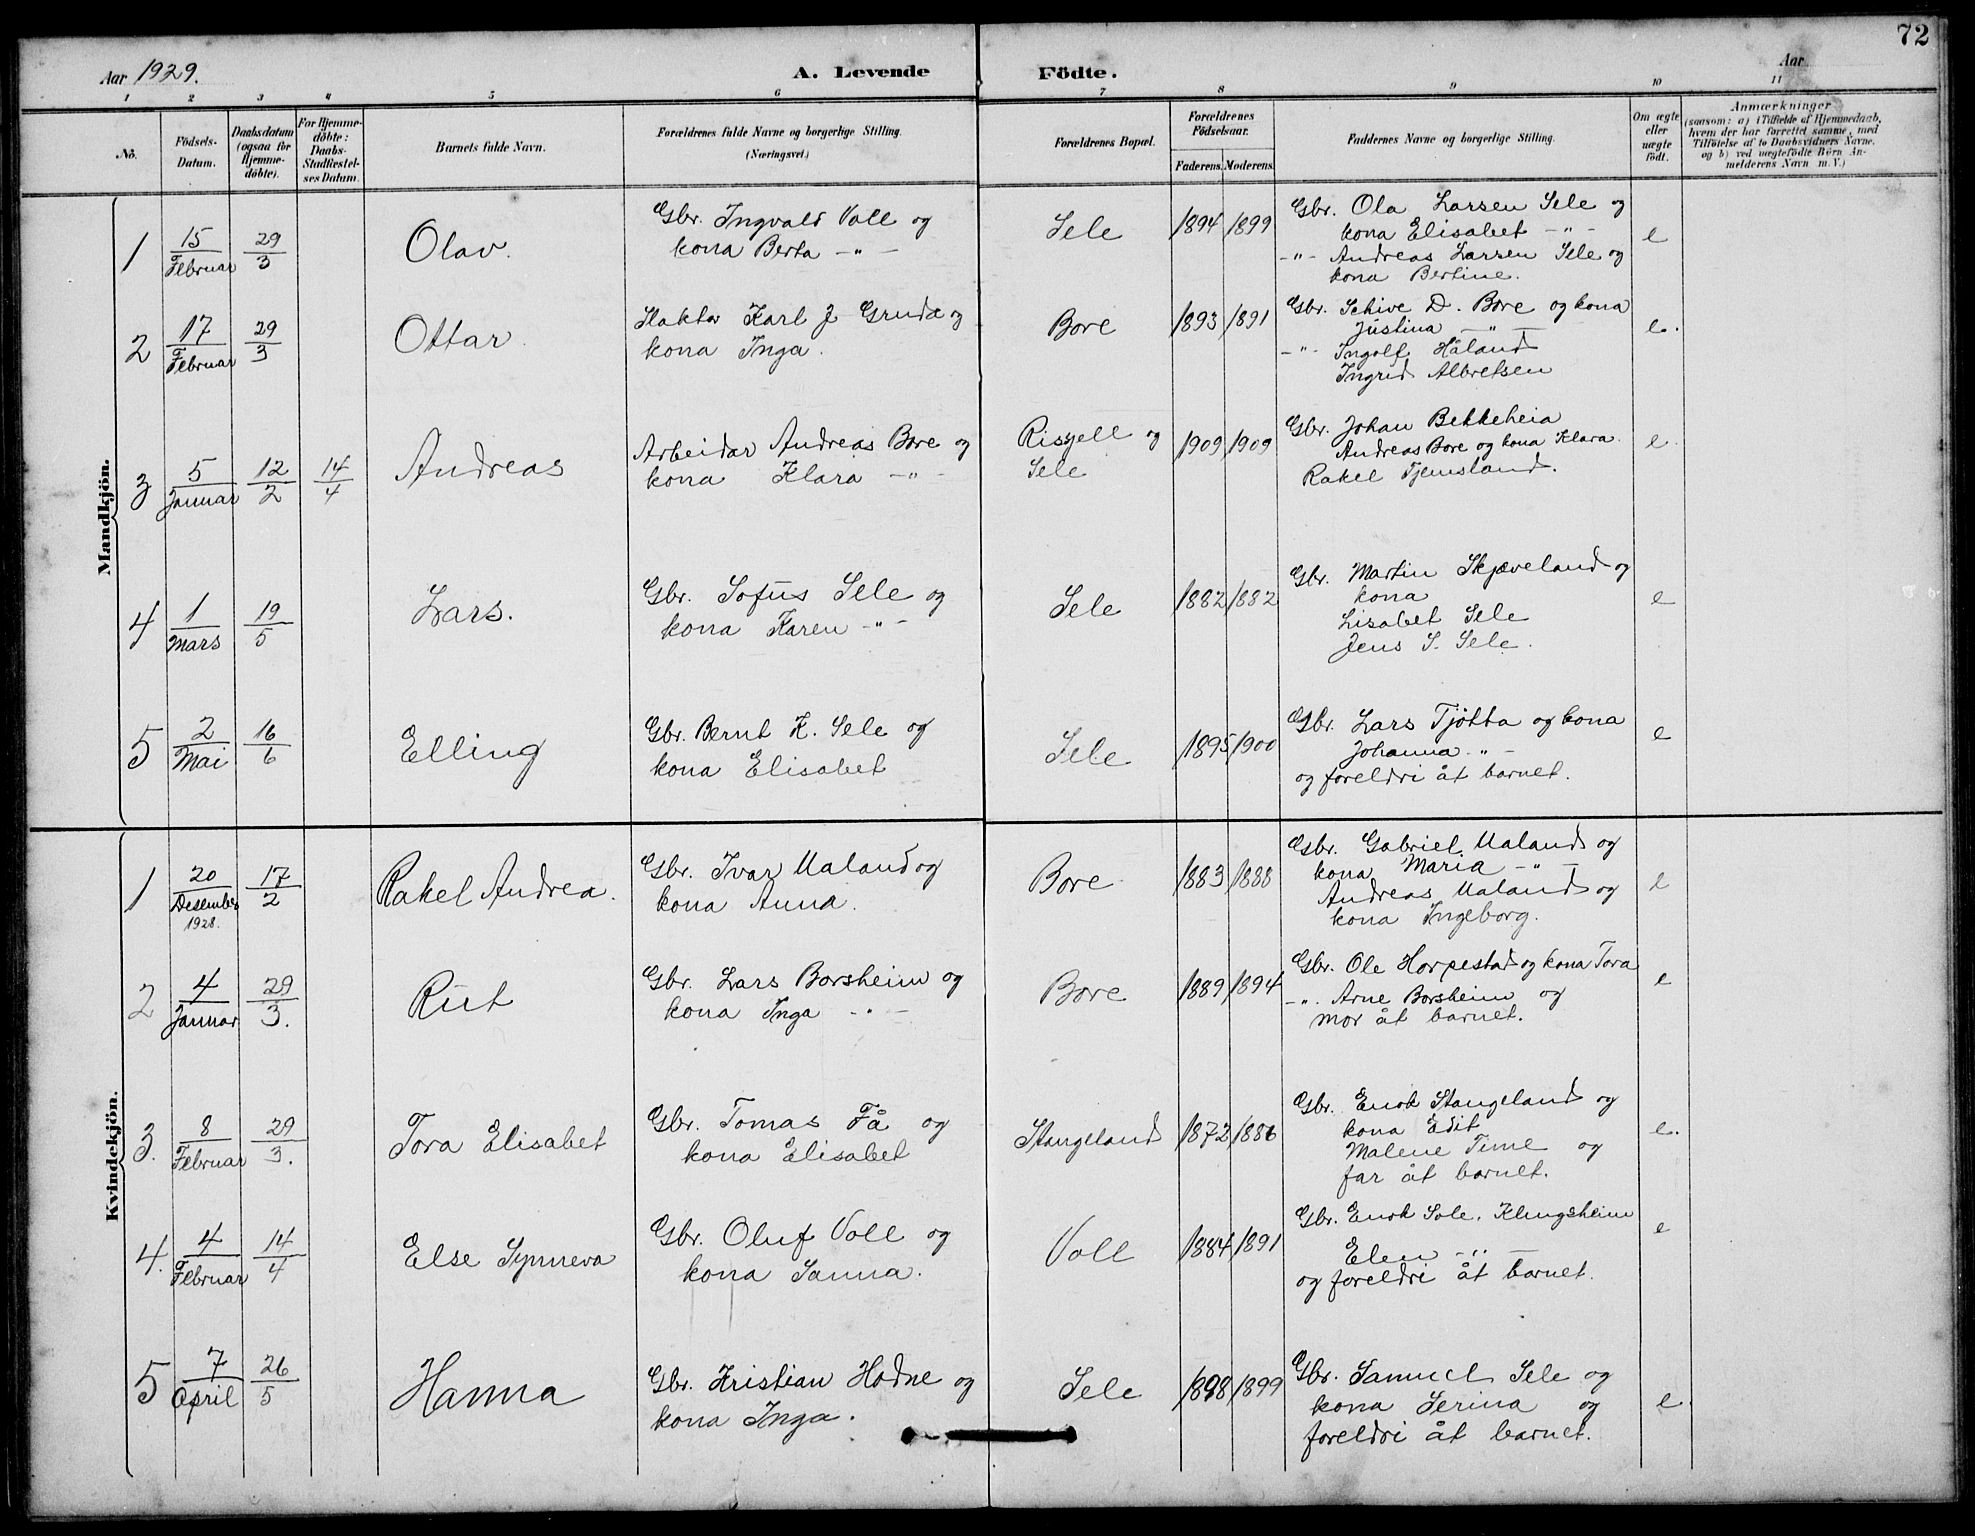 72
Aar 1929. A. Levende Födte. Aar
1 2 3 4 5 6 7 8 9 10 11
No.
Födsels-
Datum.
Daabsdatum
(ogsaa for
Hjemme-
döbte).
For Hjemme-
döbte:
Daabs-
Stadfæstel-
ses Datum.
Barnets fulde Navn.
Forældrenes fulde Navne og borgerlige Stilling.
(Næringsvei.)
Forældrenes Bopæl.
Forældrenes
Födselsaar.
Faderens. Moderens.
Faddernes Navne og borgerlige Stilling.
Om ægte
eller
uægte
födt.
Anmærkninger
(saasom: a) i Tilfælde af Hjemmedaab,
hvem der har forrettet samme, med
Tilföielse af to Daabsvidners Navne,
og b) ved uægtefödte Börn An-
melderens Navn m. V.)
Mandkjön.
1
15
Februar
29
3
Olav.
Gbr. Ingvald Voll og
kona Berta -"-
Sele
1894 1899
Gbr. Ola Larsen Sele og
kona Elisabet -"-
-"- Andreas Larsen Sele og
kona Bertine.
e
2
17
Februar
29
3
Ottar.
Slaktar Karl J Gruda og
kona Inga.
Bore
1893 1891
Gbr. Schive D. Bore og kona
Justina -"-
-"- Ingolf Håland
Ingrid Albretsen
e.
3
5
Januar
12
2
14
4
Andreas
Arbeidar Andreas Bore og
kona Klara -"-
og
Sele
1909 1909
Gbr. Johan Bekkeheia
Andreas Bore og kona Klara.
Rakel Tjemsland.
e.
4
1
Mars
19
5
Lars.
Gbr. Sofus Sele og
kona Karen -"-
Sele
1882 1882
Gbr. Martin Skjæveland og
kona
Lisabet Sele
Jens S. Sele.
e
5
2
Mai
16
6
Elling
Gbr. Bernt K. Sele og
kona Elisabet
Sele
1895 1900
Gbr. Lars Tjötta og kona
Johanna -"-
og foreldri åt barnet.
e
Kvindekjön.
1
20
Desember
1928.
17
2
Rakel Andrea.
Gbr. Ivar Ualand og
kona Anna.
Bore
1883 1888
Gbr. Gabriel Ualand og
kona Maria -"-
Andreas Ualand og
kona Ingeborg.
e
2
4
Januar
29
3.
Rut
Gbr. Lars Borsheim og
kona Inga -"-
Bore
1889 1894
Gbr. Ole Horpestad og kona Tora
-"- Arne Borsheim og
mor åt barnet.
e
3.
8
Februar
29
3.
Tora Elisabet
Gbr. Tomas Få og
kona Elisabet
Stangeland
1872 1886
Gbr. Enok Stangeland og
kona Edit
Malene Time og
far åt barnet.
e.
4.
4
Februar
14
4
Else Synneva
Gbr. Oluf Voll og
kona Sanna.
Voll
1884 1891
Gbr. Enok Sole. Klungsheim
Elen -"-
og foreldri åt barnet.
e
5
7
April
26
5
Hanna
Gbr. Kristian Hodne og
kona Inga.
Sele
1898 1899
Gbr. Samuel Sele og
kona Serina og
foreldri åt barnet.
e.